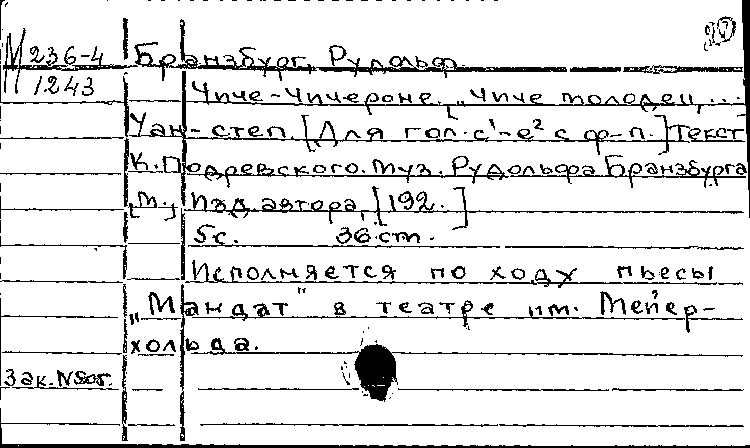 М 236-4
1243
Бранзбург, Рудольф.
Чиче-Чичероне. [„Чиче молодец,...
Уан-степ. [Для гол. с¹-е² с ф-п.] Текст
К. Подревского. Муз. Рудольфа Бранзбурга
[М.] Изд. автора, [192. ]
5с. 36 ст.
Исполняется по ходу пьесы
„Мандат" в театре им. Мейер-
хольда.
Зак. №